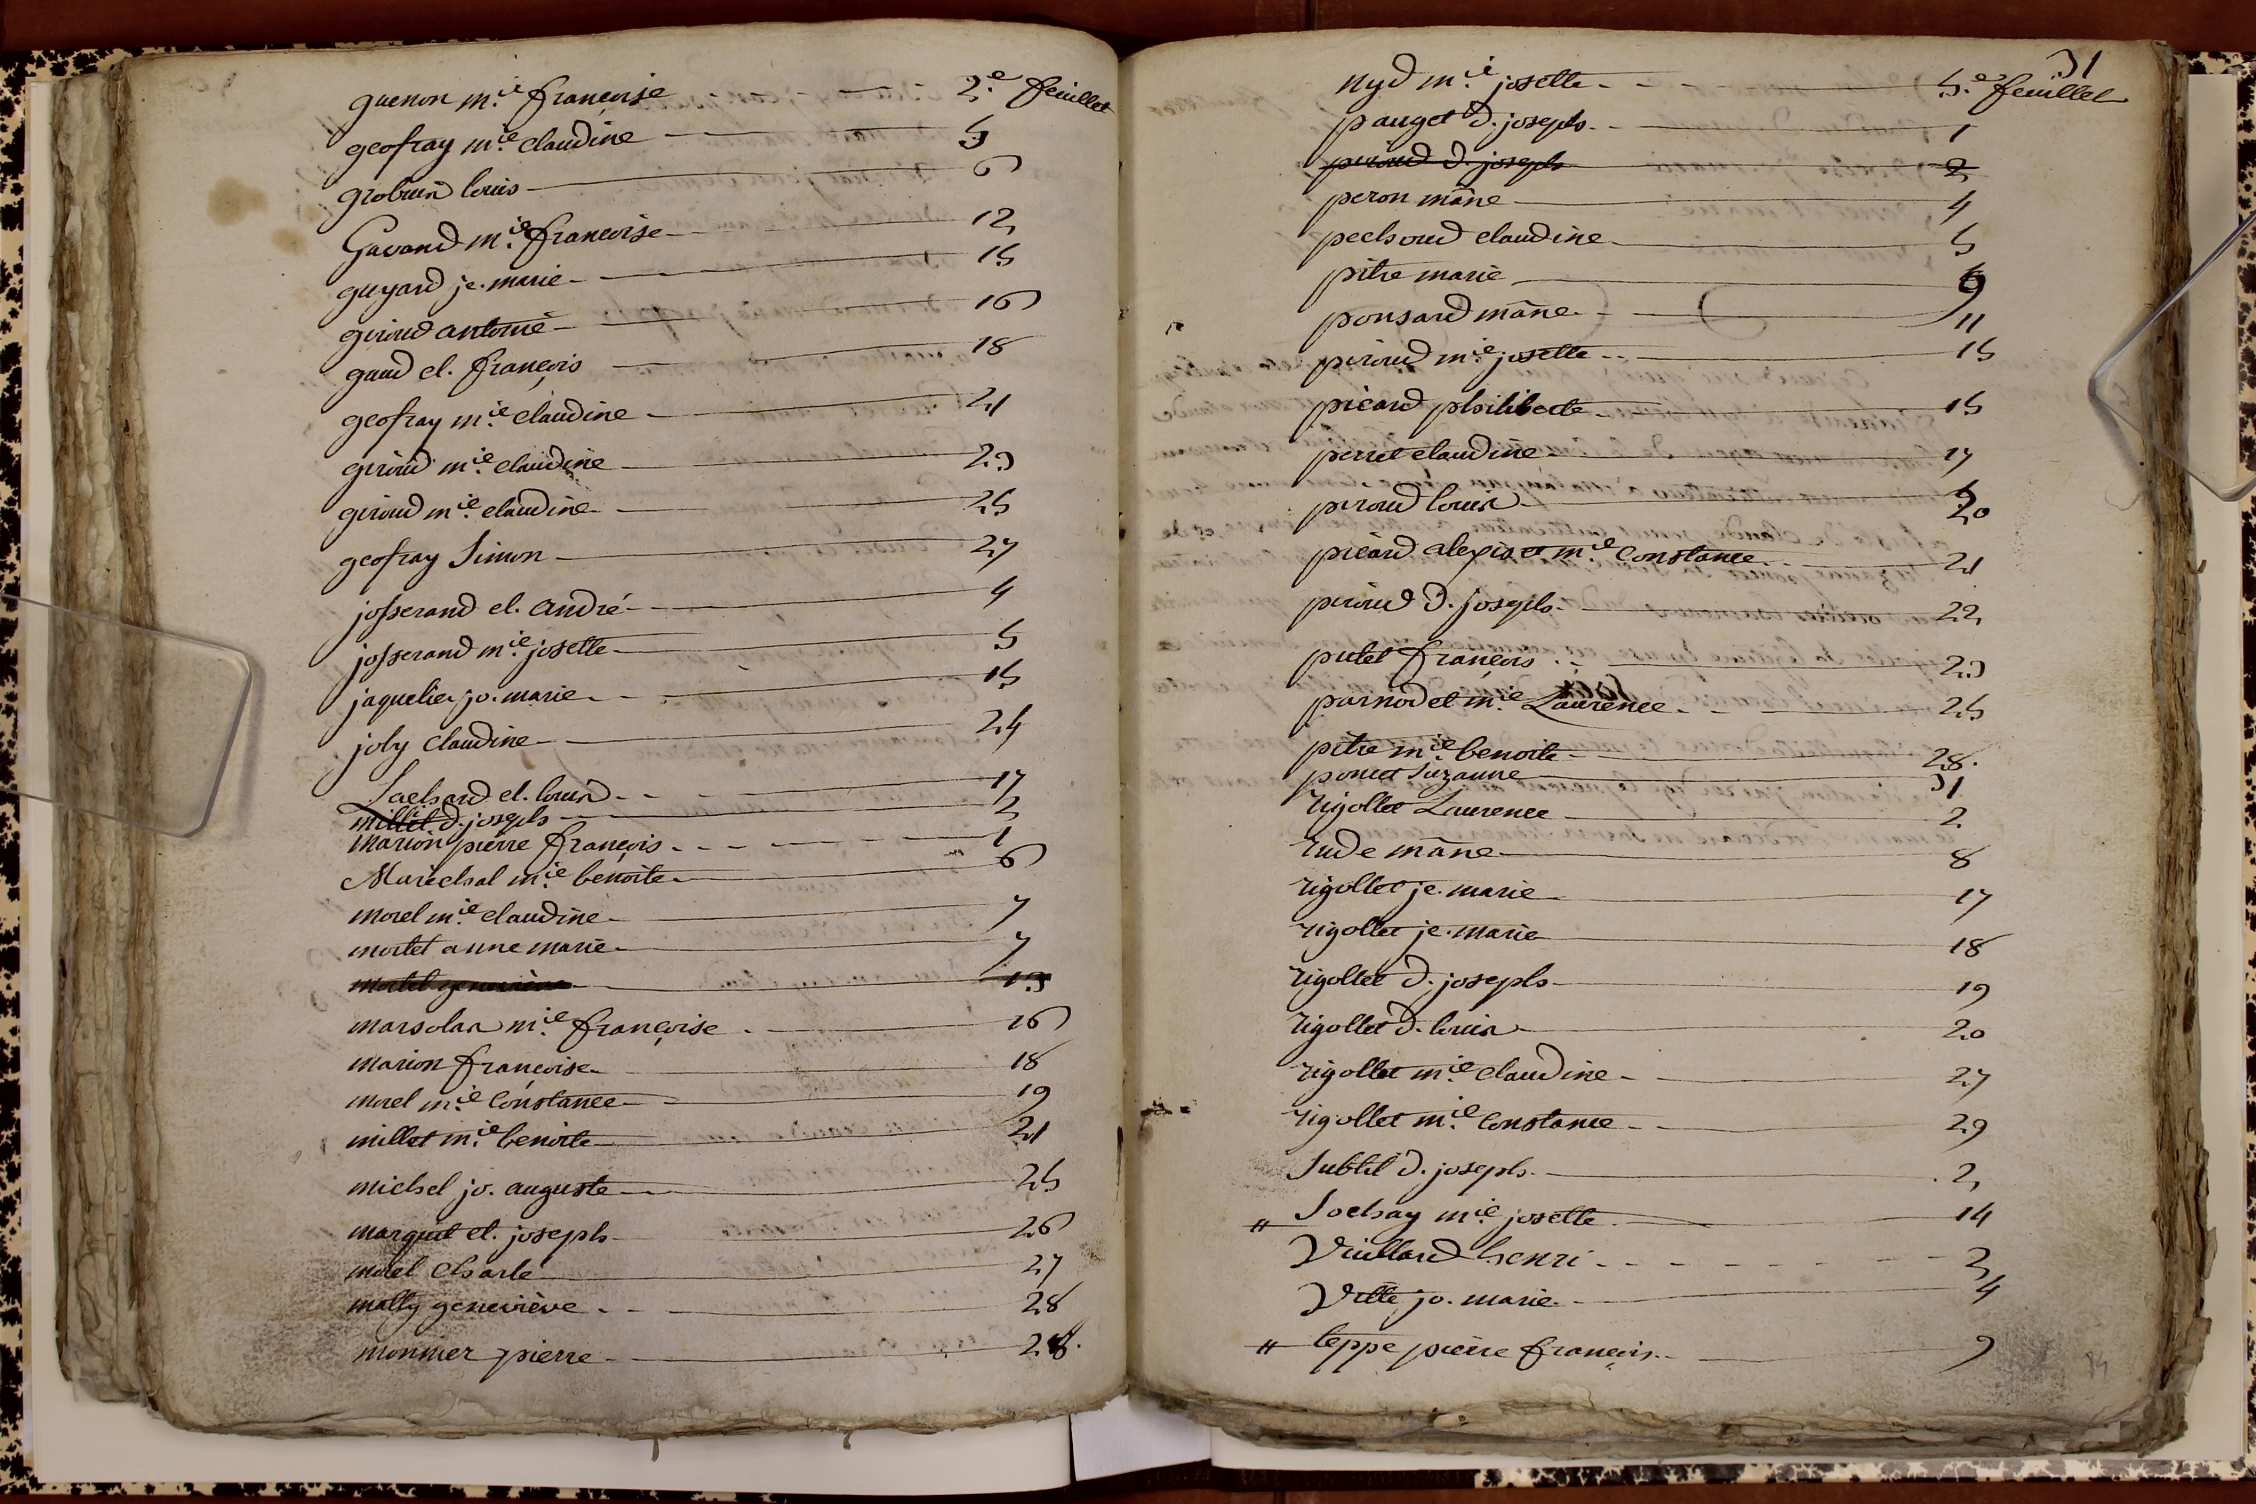 guenon m.ie françoise — 2.e feuillet
geofray m.ie claudine — 3
grobuis louis — 6
Gavand m.ie françoise — 12
guyard je. marie — 15
giroud antoine — 16
gaud cl. françois — 18
geofray m.ie claudine — 21
giroud m.ie claudine — 23
giroud m.ie claudine — 25
geofray Simon — 27
josserand cl. andré — 4
josserand m.ie josette — 5
jaquelier jo. marie — 15
joly claudine — 24
Lachard cl. louis — 17
millet d. joseph — 2
marion pierre françois — 1
Marechal m.ie benoite — 6
morel m.ie claudine — 7
mortel anne marie — 7
mortel genevieve — 13
marsolas m.ie françoise — 16
marion françoise — 18
morel m.ie Constance — 19
millet m.ie benoite — 21
michel jo. auguste — 25
marquit cl. joseph — 26
morel Charle — 27
matty geneviève — 28
monnier pierre — 28.
31
nyd m.ie josette — 5.e feuillet
pauget d. joseph — 1
piroud d. joseph — 2
peron mane — 4
pechoud claudine — 5
pitre marie — 9
ponsard mane — 11
piroud m.ie josette — 15
picard philiberte — 15
perret claudine — 17
piroud louis — 20
picard alexis et m.ie Constance — 21
piroud d. joseph — 22
putet françois — 23
parnodet m.ie Laurence — 25
pitre m.ie benoite — 28.
ponet Suzanne — 31
rigollet Laurence — 2
rude mane — 8
rigollet je. marie — 17
rigollet je. marie — 18
rigollet d. joseph — 19
rigollet d. louis — 20
rigollet m.ie claudine — 27
rigollet m.ie Constance — 29
Subtil d. joseph — 2
" Sochay m.ie josette — 14
Vuillard henri — 2
Vitte jo. marie — 4
" teppe pierre françois — 9